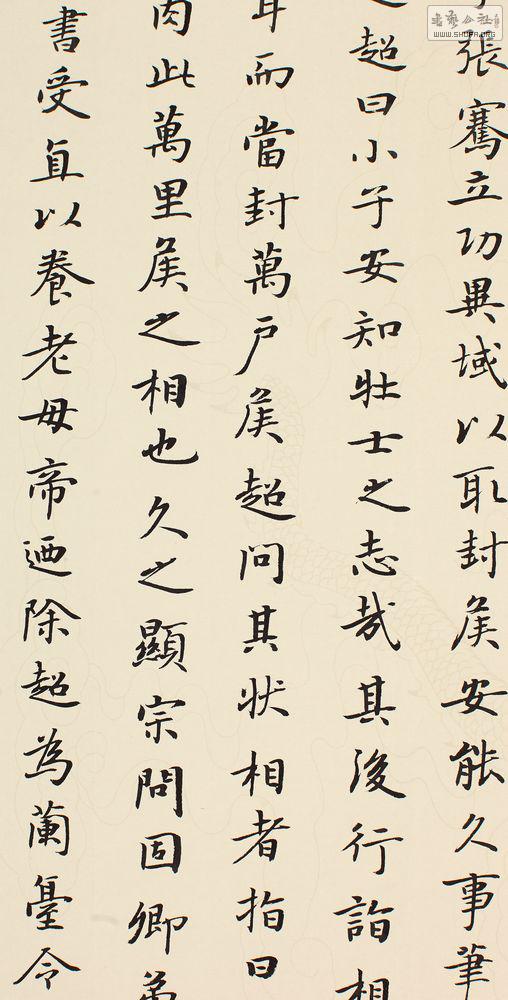 張騫立功異域以取封侯安能久事筆
超曰小子安知壯士之志哉其後行詣相
耳而當封萬戶侯超問其狀相者指曰
肉此萬里侯之相也久之顯宗問固卿弟
書受直以養老母帝迺除超為蘭臺令
WWW.SHUFA.ORG